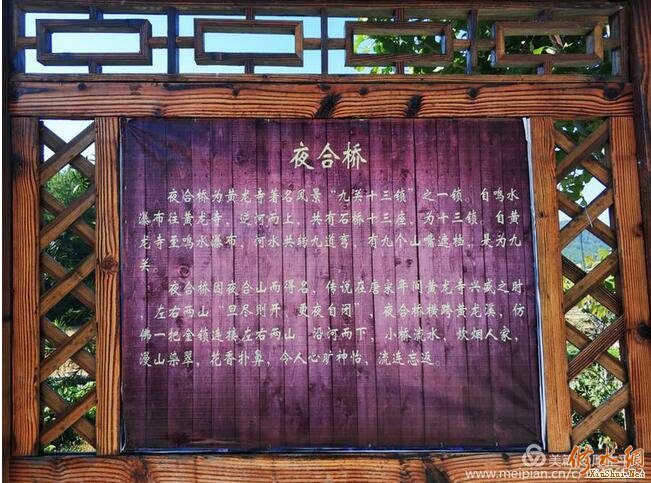 夜合桥
夜合桥为黄龙寺著名风景“九关十三锁”之一锁。自鸣水
瀑布往黄龙寺，逆河而上，共有石桥十三座，为十三锁，自黄
龙寺至鸣水瀑布，河水共转九道弯，有九个山嘴遮档，是为九
关。
夜合桥因夜合山而得名，传说在唐宋年间黄龙寺兴盛之时
，左右两山“旦尽则开，更夜自闭”，夜合桥横跨黄龙溪，仿
佛一把金锁连接左右两山。沿河而下，小桥流水，炊烟人家，
漫山染翠，花香扑鼻，令人心旷神怡，流连忘返。
www.meipian.cn/c/
修水网
XiuShui.Net